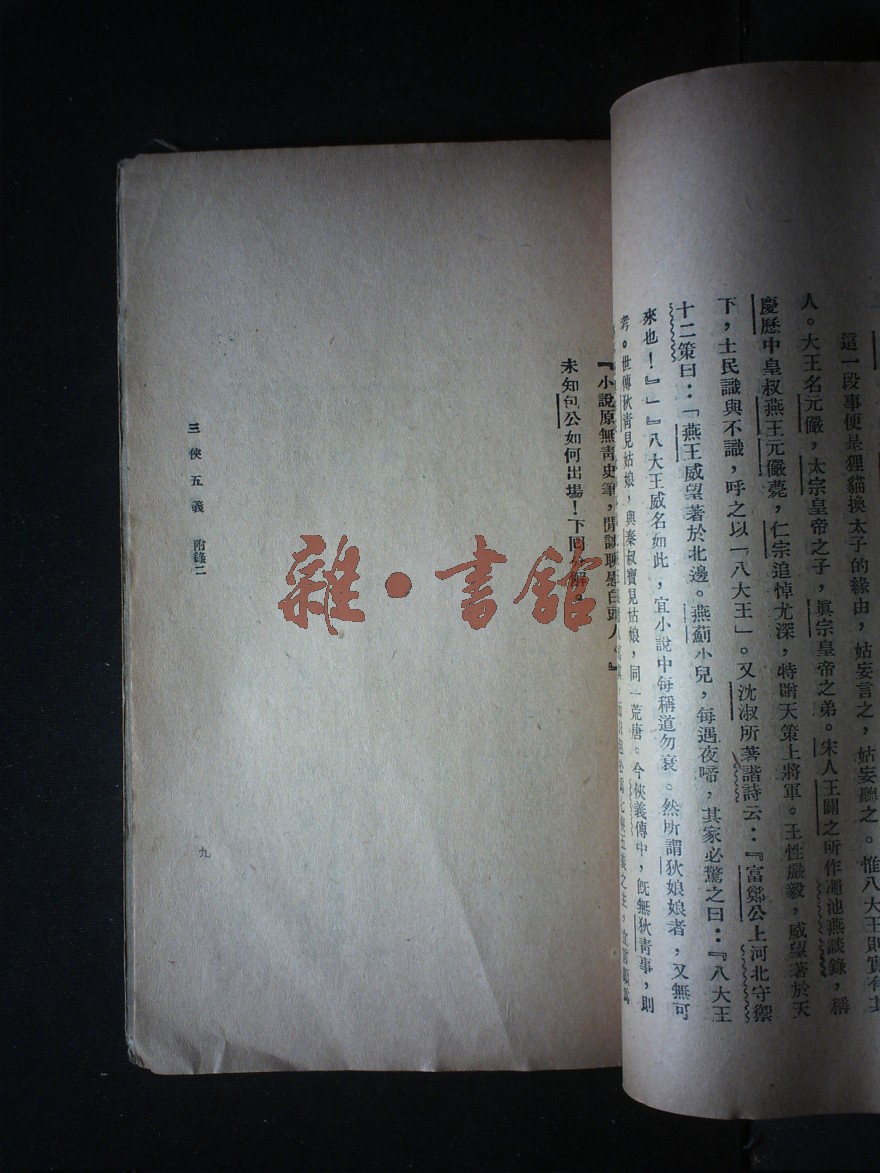 這一段事便是狸貓換太子的緣由，姑妄言之，姑妄聽之。惟八大王則實有其
人。大王名元儼，太宗皇帝之子，真宗皇帝之弟。宋人王闢之所作澠池燕談錄，稱
慶歷中皇叔燕王元儼薨，仁宗追悼尤深，特贈天策上將軍。王性嚴毅，威望著於天
下，士民識與不識，呼之以「八大王」。又沈淑所著諧詩云：『富鄭公上河北守禦
十二策曰：「燕王威望著於北邊。燕薊小兒，每遇夜啼，其家必驚之曰：『八大王
來也！』」』八大王威名如此，宜小說中每稱道勿衰。然所謂狄娘娘者，又無可
考。世傳狄青見姑娘，與秦叔寶見姑娘，同一荒唐。今俠義傳中，旣無狄青事，則
『小說原無青史筆，閒談聊慰白頭人。』
未知包公如何出場！下回分解。
三俠五義 附錄二
九
雜·書館